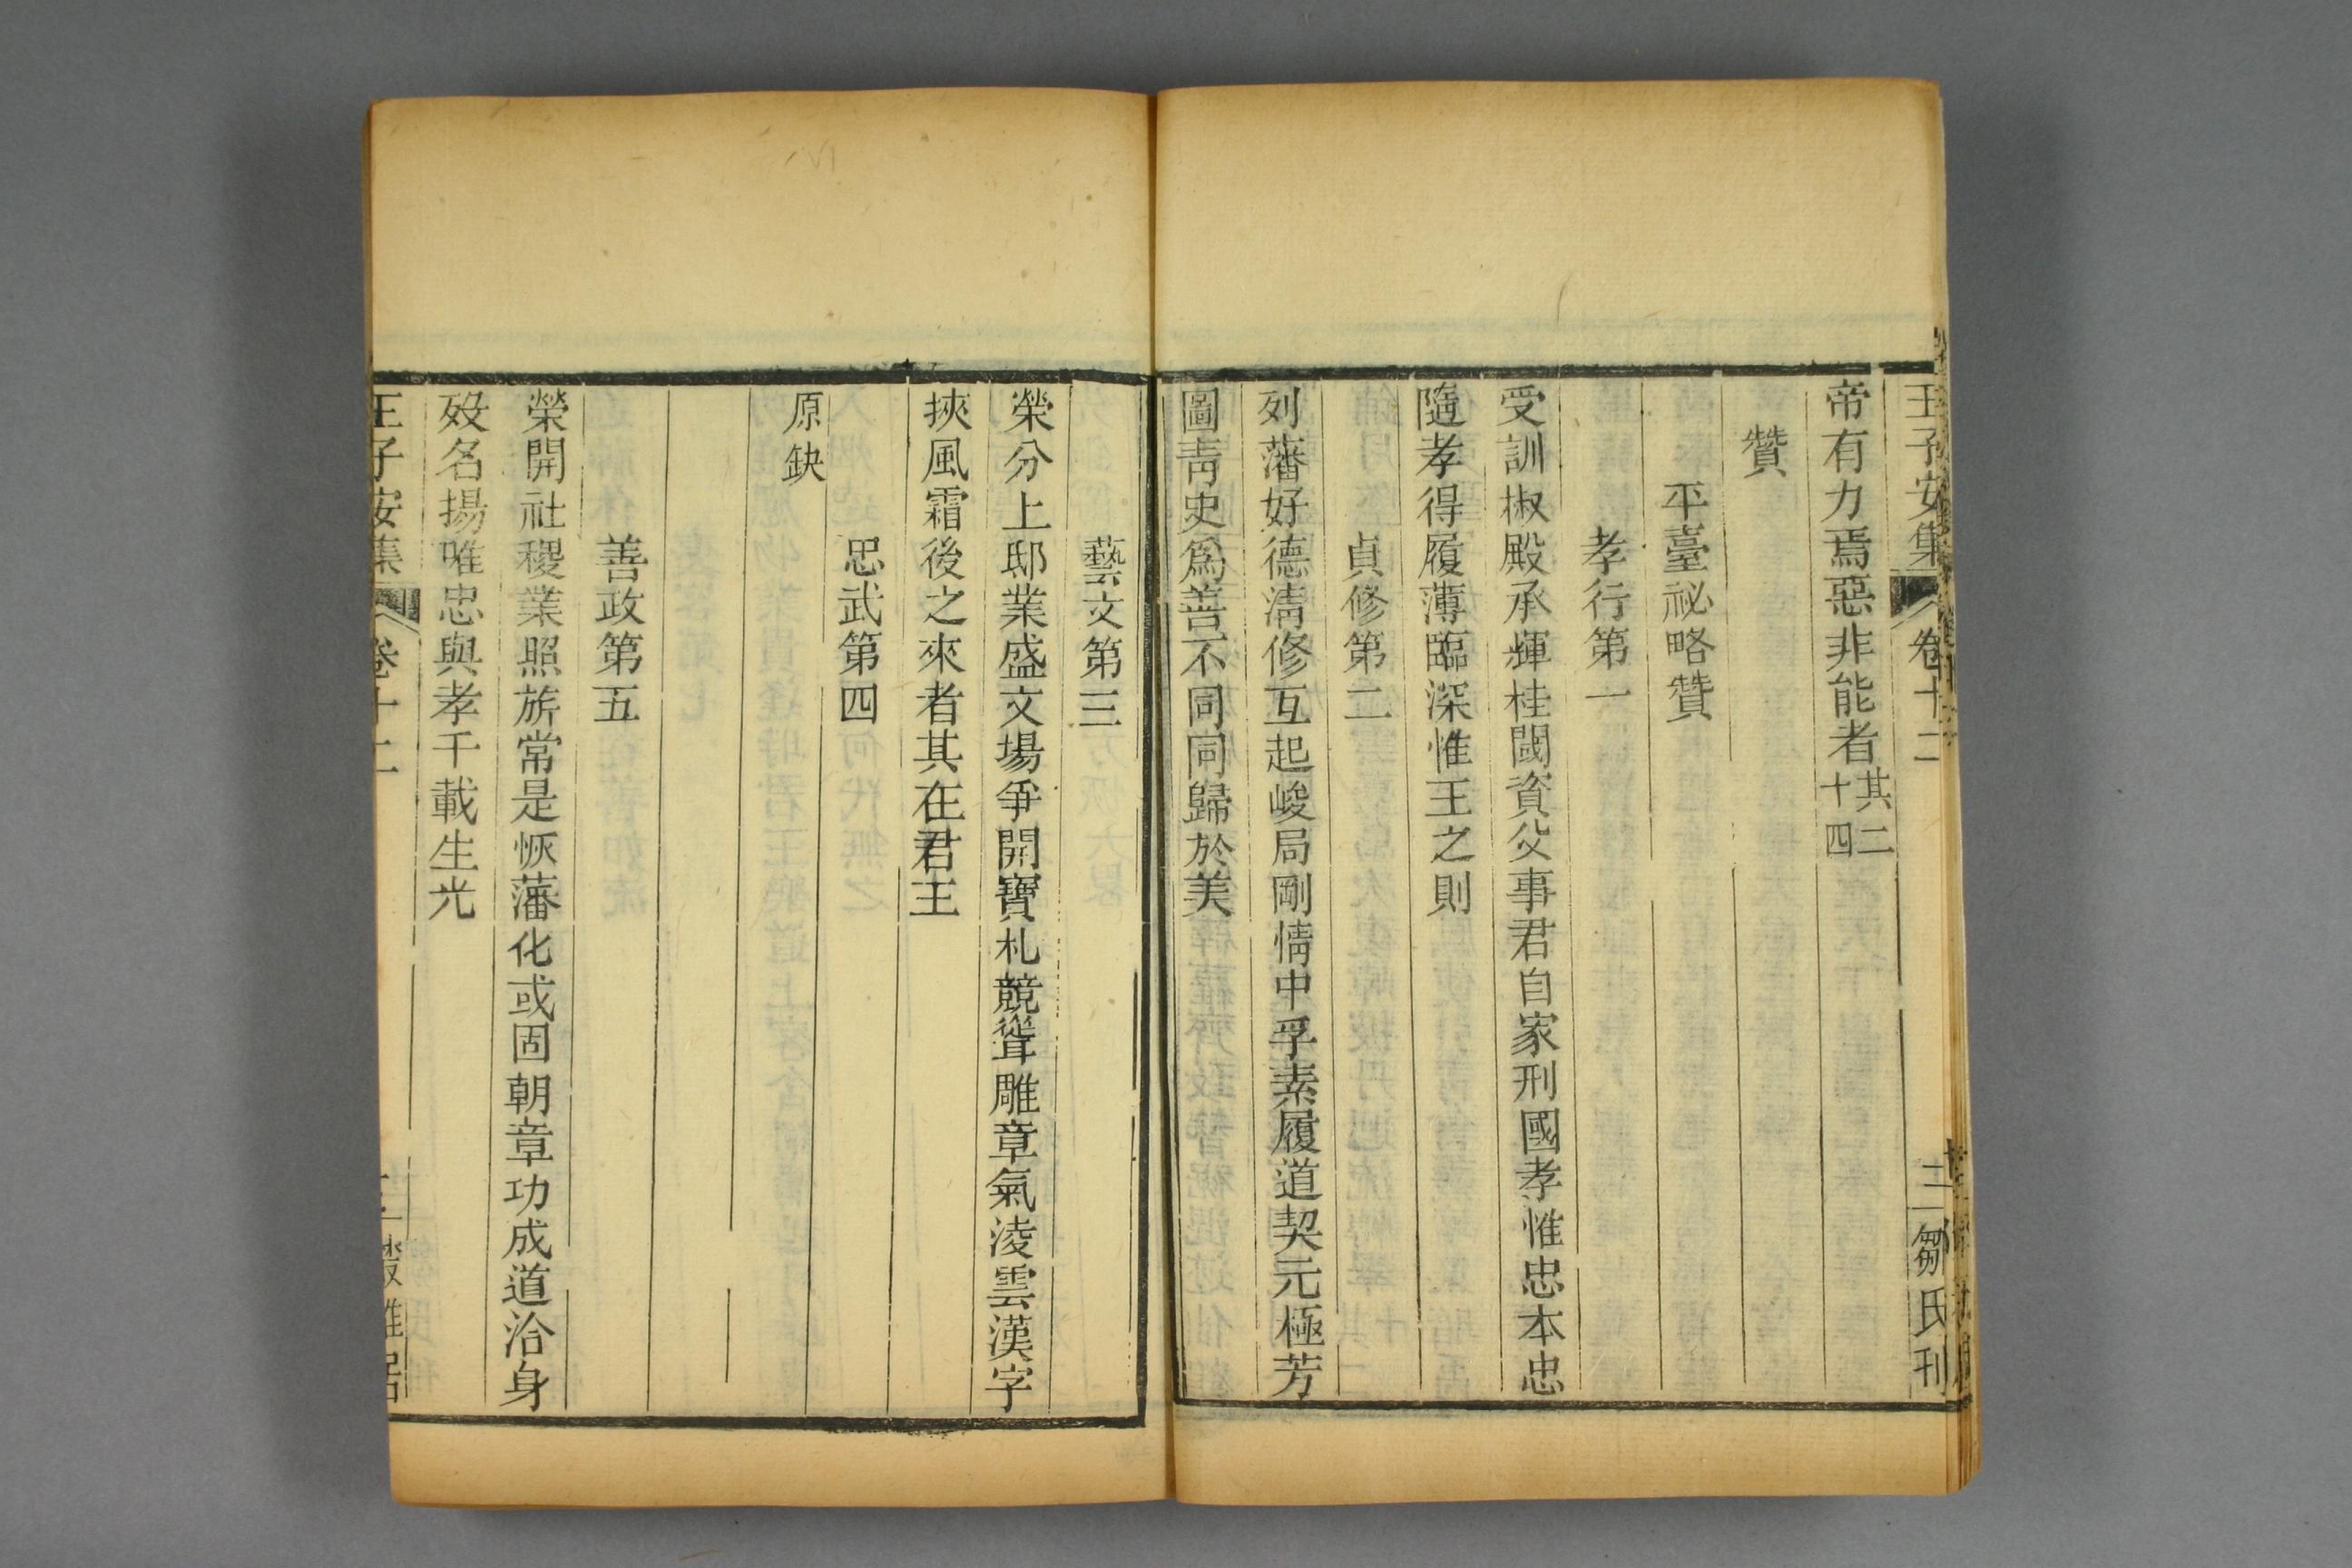 王子安集 卷十二 三 鄒氏刊
帝有力焉惡非能者其二十四
贊
平臺祕略贊
孝行第一
受訓椒殿承輝桂闥資父事君自家刑國孝惟忠本忠
隨孝得履薄臨深惟王之則
貞修第二
列藩好德淸修互起峻局剛情中孚素履道契元極芳
圖靑史爲善不同同歸於美
藝文第三
榮分上邸業盛文場爭開寶札競聳雕章氣淩雲漢字
挾風霜後之來者其在君王
忠武第四
原缺
善政第五
榮開社稷業照旂常是恢藩化或固朝章功成道洽身
歿名揚唯忠與孝千載生光
王子安集 卷十二